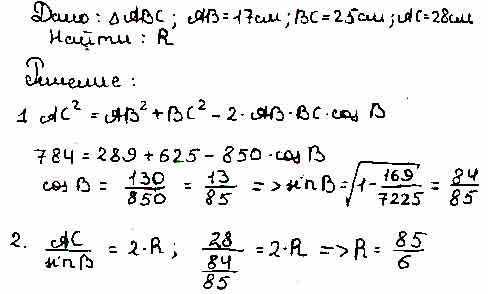 Дано: △ABC; AB=17см; BC=25см; AC=28см
Найти: R
Решение:
1 AC² = AB² + BC² - 2·AB·BC·cos B
784 = 289 + 625 - 850·cos B
cos B = 130/850 = 13/85 => sin B = √(1 - 169/7225) = 84/85
2. AC/sin B = 2·R; 28/(84/85) = 2·R => R = 85/6